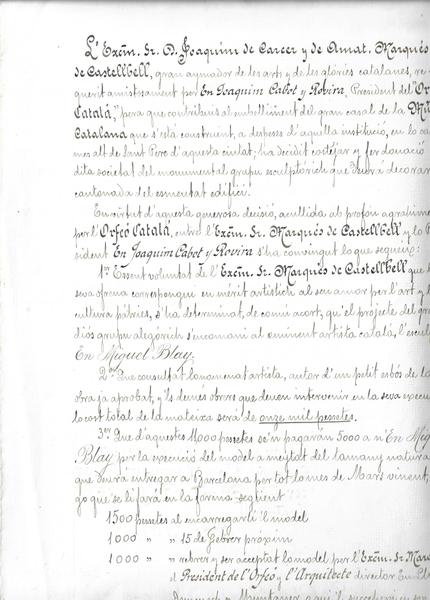 L'Excm. Sr. D. Joaquim de Carcer y de Amat. Marqués
de Castellbell, gran aymador de les arts y de les glories catalanes, re-
querit amistosament per En Joaquim Cabot y Rovira, President del "Or
Catalá," pera que contribuis al embelliment del gran casal de la Mú
Catalana que s'está construint, a despeses d'aquella institució, en lo ca
mes alt de Sant Pere d'aquesta ciutat; ha decidit costejar y fer donació
dita societat del monumental grupu esculptórich que deurá decorar
cantonada del esmentat edifici.
En virtut d'aquesta generosa decisió, acullida ab profón agrahime
per l'Orfeó Catalá, entre l'Excm. Sr. Marqués de Castellbell y lo P
sident En Joaquim Cabot y Rovira s'ha convingut lo que segueix:
1er Essent voluntat de l'Excm. Sr. Marqués de Castellbell que l
seva ofrena correspongui en mérit artístich al seu amor per l'art y l
cultura patries, s'ha determinat, de comú acort, qu'el projecte del gra
diós grupu alegórich s'encomani al eminent artista catalá, l'escul
En Miquel Blay.
2on Que consultat l'anomenat artista, autor d'un petit esbós de lo
obra ja aprobat, y ls demés obrers que deuen intervenir en la seva execu
lo cost total de la mateixa será de onze mil pessetes.
3er Que d'aquestes 11,000 pessetes se'n pagarán 5000 a n'En Miq
Blay per la execució del model a meytat del tamany natura
que deurá entregar a Barcelona per tot lo mes de Mars vinent,
go que se li fará en la forma següent
1500 pessetes al encarregarli l model
1000 " " 15 de Febrer próxim
1000 " " rebrer y ser acceptat lo model per l'Excm. Sr. Mar
el President de l'Orfeó y l'Arquitecte director En Ll
Domenech y Montaner